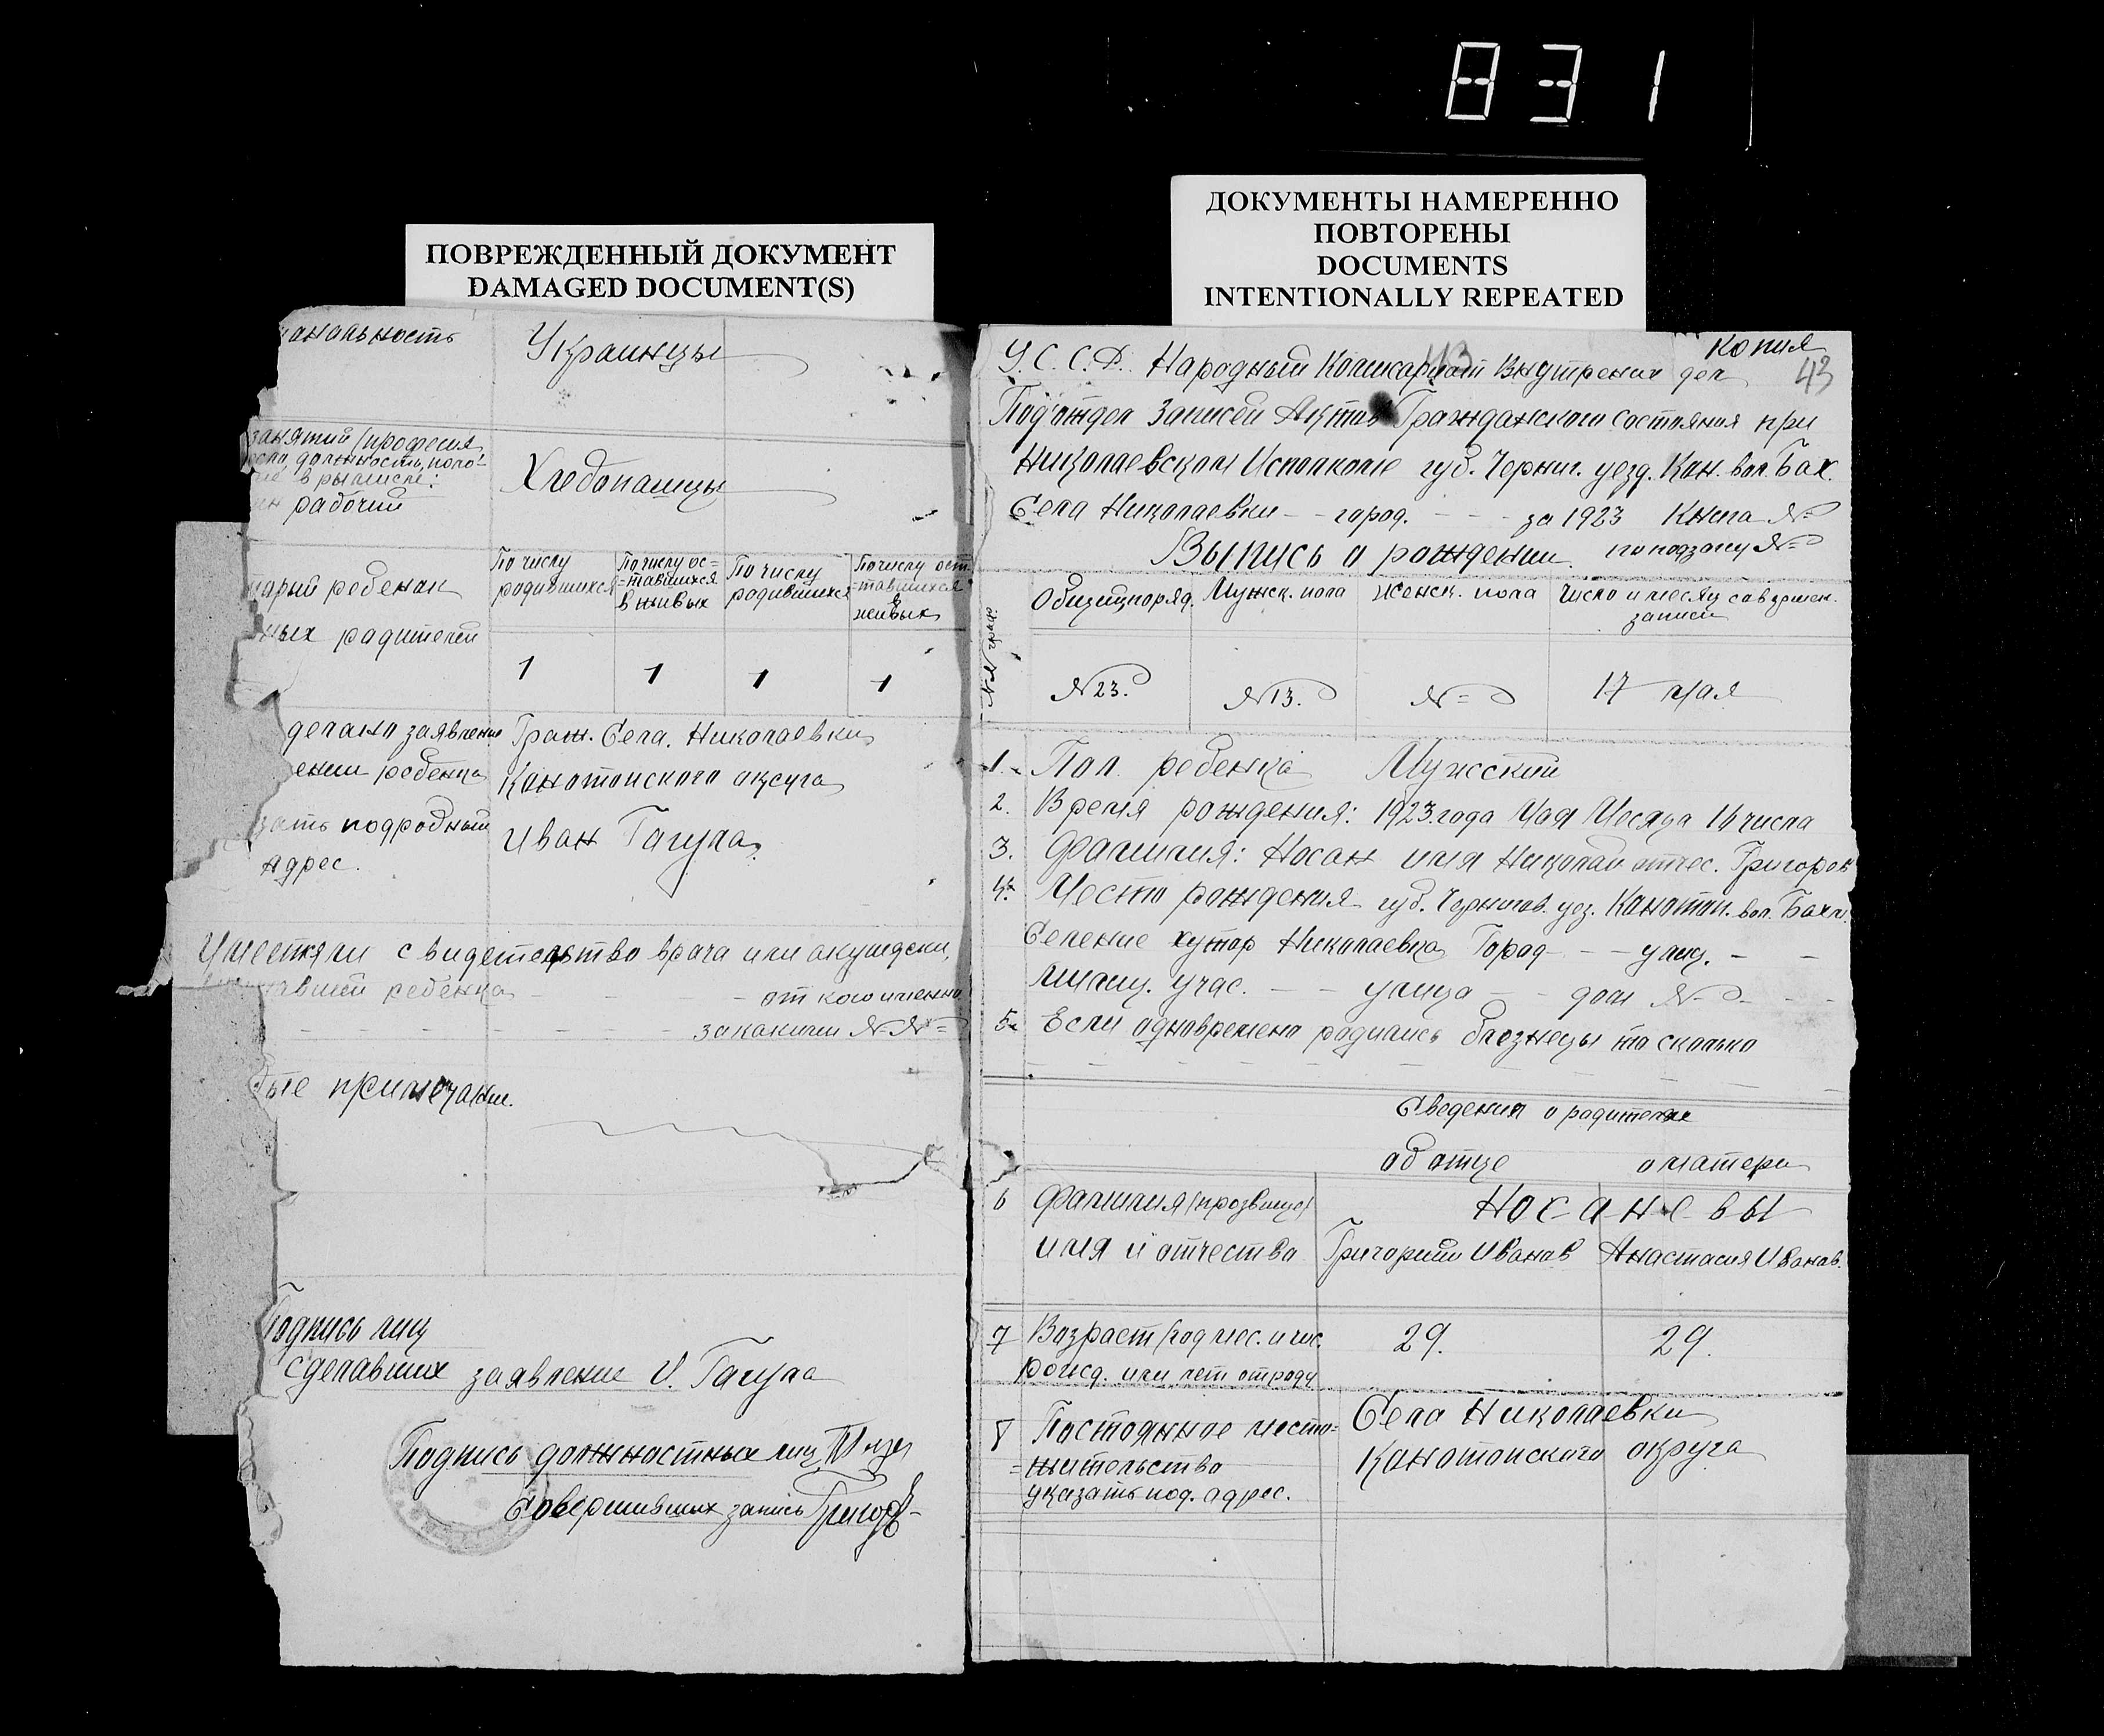 831
ПОВРЕЖДЕННЫЙ ДОКУМЕНТ
DAMAGED DOCUMENT(S)
ДОКУМЕНТЫ НАМЕРЕННО
ПОВТОРЕНЫ
DOCUMENTS
INTENTIONALLY REPEATED
нальность Украинцы
занятий (професия
должность, поло-
рабочий
Хлебопашцы
По числу родившихся
По числу ос=
=тавшихся
в живых
По числу родившихся
По числу ост
=тавшихся
в
живых
ребенок
ных родителей
1 1 1 1
делано заявление Граж. Села. Николаевки
ении ребенка Конотопского округа
зать подробный Иван Гагула
адрес.
свидетельство врача или акушерки,
ребенка - - - от кого именно
- - - - - за какими №№ =
примечание.
Подпись лиц
сделавших заявление И. Гагула
Подпись должностных лиц
Совершивших запись
Копия
43
43
У.С.С.Р. Народный Комисариат Внутрених дел
Подотдел Записей Актов Гражданского состояния при
Николаевском Исполкоме губ. Черниг. уезд. Кон. вол. Бах.
Села Николаевки - - город. - - - за 1923 Книга № =
Выпись о рождении.
№№ граф
Общий поряд. Мужск. пола Женск. пола Число и месяц совершен.
записи
№ 23. № 13. № = 17 мая
1. Пол ребенка Мужский
2. Время рождения: 1923 года Мая Месяца 14 числа
3. Фамилия: Носан имя Николай отчес. Григоров
4. Место рождения губ. Чернигов. уез. Конотоп. вол. Бахм.
Селение хутор Николаевка Город - - - улиц. - -
учас. - - улица - - дом № - -
5. Если одновремено родились близнецы то сколько
Сведения о родителях
об отце о матери
6 Фамилия (прозвище) Носановы
имя и отчество Григорий Иванов Анастасия Иванов.
7 Возраст (год мес. и чис. 29. 29.
рожд. или лет отроду
8 Постоянное место=
=жительство
указать под. адрес.
Села Николаевки
Конотопского округа